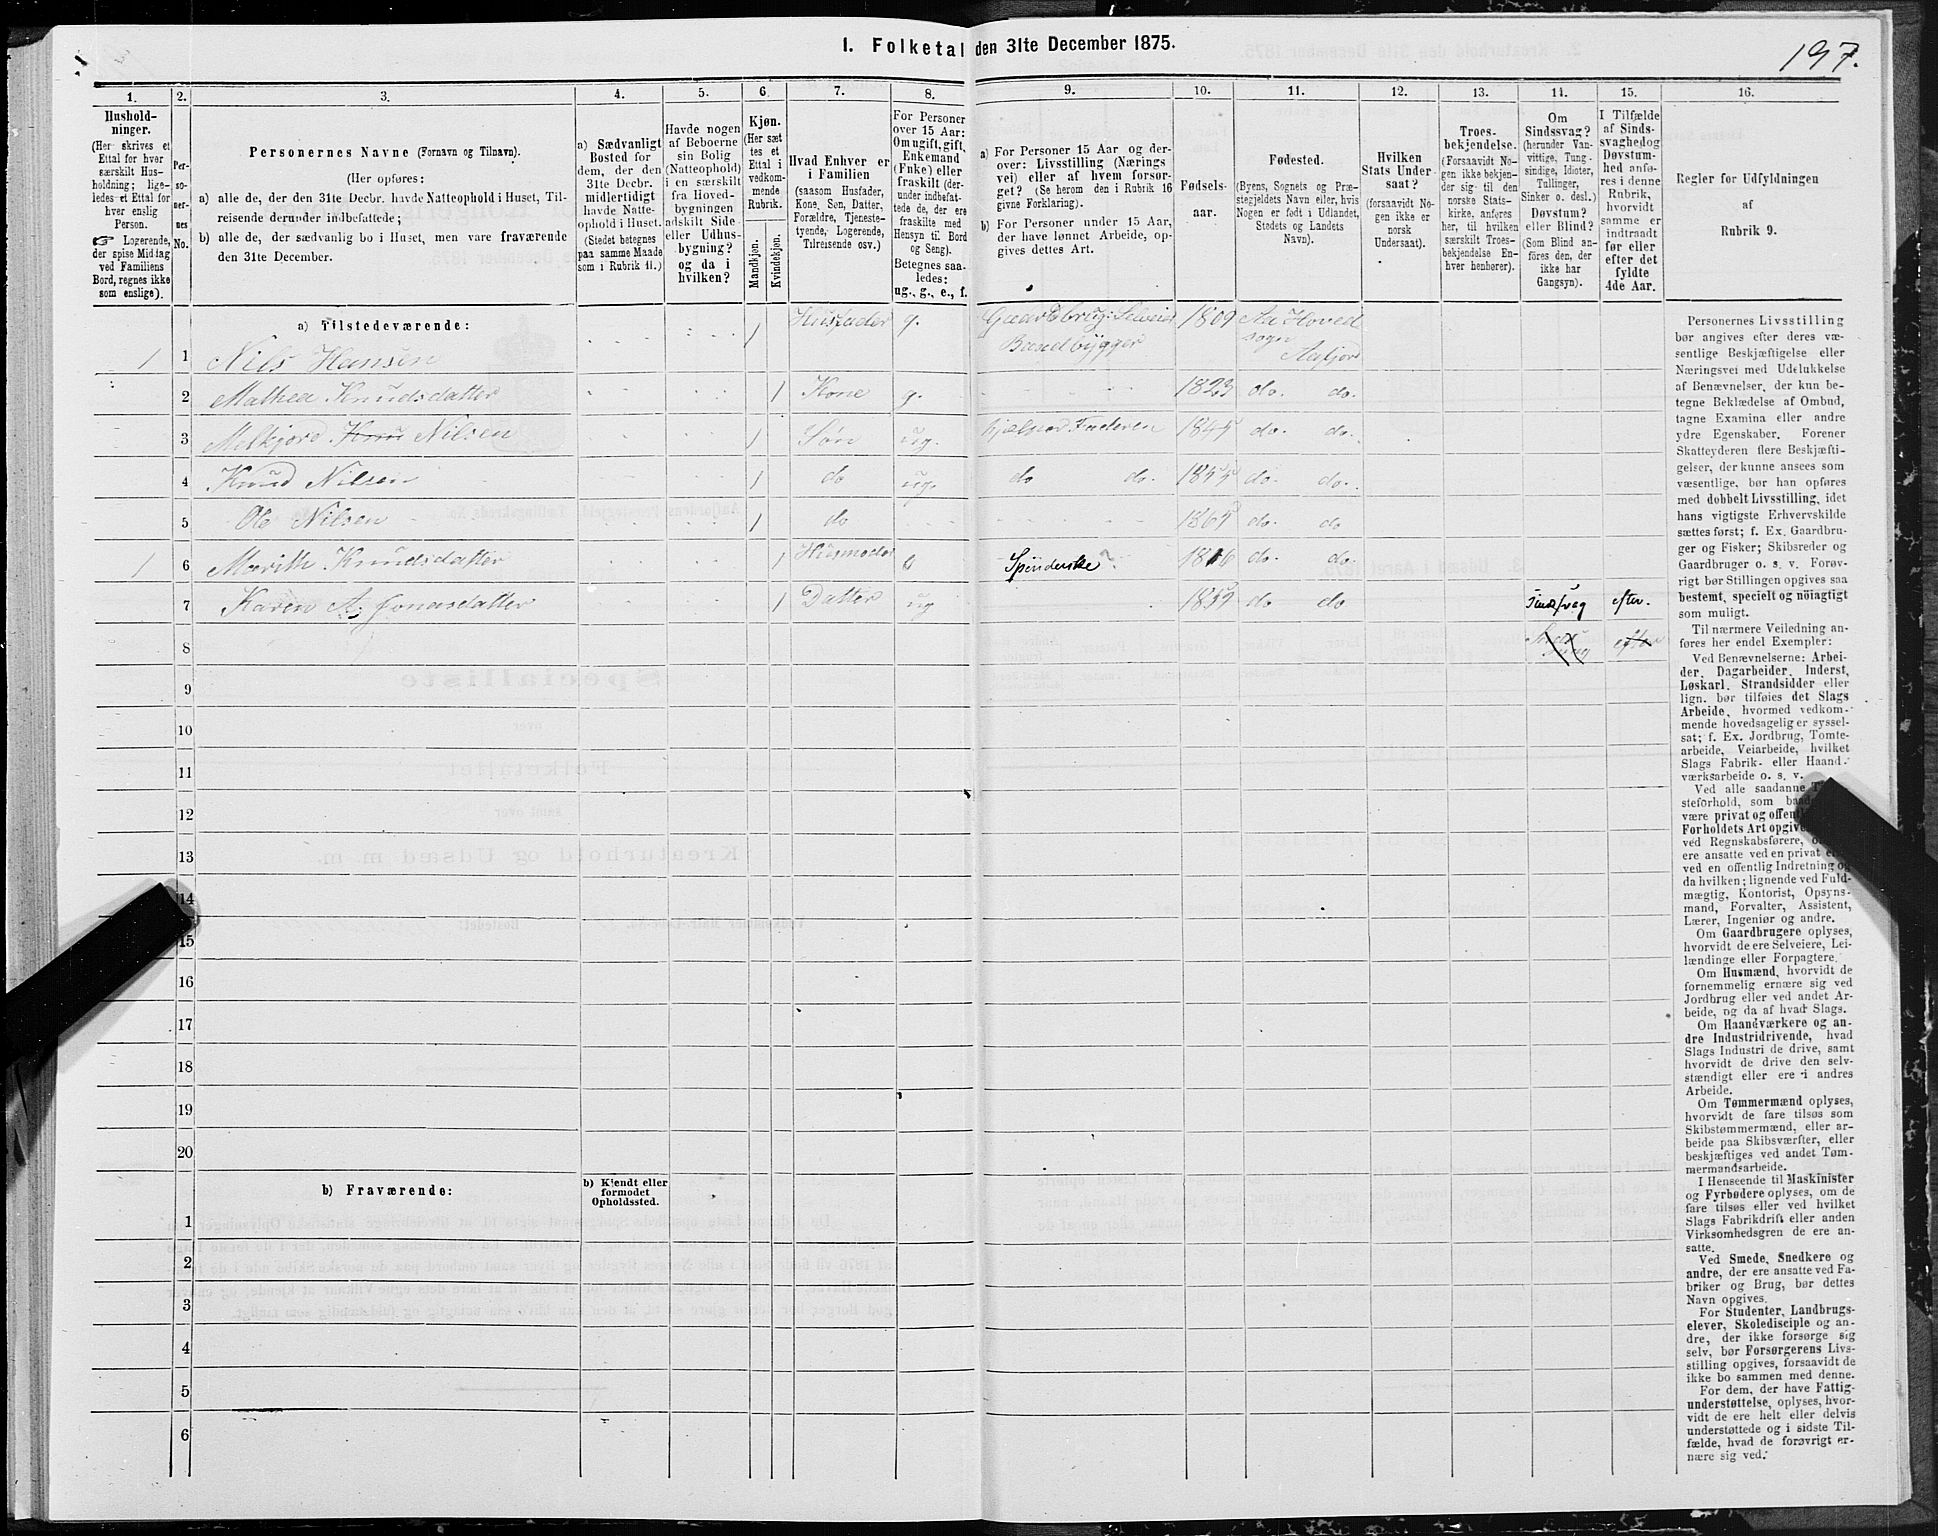 I. Folketal den 31te December 1875.
197.
1.
2.
3.
4.
5.
6.
7.
8.
9.
10.
11.
12.
13.
14.
15.
16.
Hushold-
ninger.
(Her skrives et
Ettal for hver
særskilt Hus-
holdning; lige-
ledes et Ettal for
hver enslig
Person.
☞ Logerende,
der spise Middag
ved Familiens
Bord, regnes ikke
som enslige).
Per-
so-
ner-
nes
No.
Personernes Navne (Fornavn og Tilnavn).
(Her opføres:
a) alle de, der den 31te Decbr. havde Natteophold i Huset, Til-
reisende derunder indbefattede;
b) alle de, der sædvanlig bo i Huset, men vare fraværende
den 31te December.
a) Sædvanligt
Bosted for
dem, der den
31te Decbr.
midlertidigt
havde Natte-
ophold i Huset.
(Stedet betegnes
paa samme Maade
som i Rubrik 11.)
Havde nogen
af Beboerne
sin Bolig
(Natteophold)
i en særskilt
fra Hoved-
bygningen
adskilt Side-
eller Udhus-
bygning?
og da i
hvilken?
Kjøn.
(Her sæt
tes et
Ettal i
vedkom-
mende
Rubrik.
Mandkjøn.
Kvindekjøn.
Hvad Enhver er
i Familien
(saasom Husfader,
Kone, Søn, Datter,
Forældre, Tjeneste-
tyende, Logerende,
Tilreisende osv.)
For Personer
over 15 Aar:
Om ugift, gift,
Enkemand
(Enke) eller
fraskilt (der-
under indbefat-
tede de, der ere
fraskilte med
Hensyn til Bord
og Seng).
Betegnes saa-
ledes:
ug., g., e., f.
a) For Personer 15 Aar og der-
over: Livsstilling (Nærings
vei) eller af hvem forsor-
get? (Se herom den i Rubrik 16
givne Forklaring).
b) For Personer under 15 Aar,
der have lønnet Arbeide, op-
gives dettes Art.
Fødsels-
aar.
Fødested.
(Byens, Sognets og Præ-
stegjeldets Navn eller, hvis
Nogen er født i Udlandet,
Stedets og Landets
Navn).
Hvilken
Stats Under
saat?
(forsaavidt No-
gen ikke er
norsk
Undersaat).
Troes-
bekjendelse.
(Forsaavidt No-
gen ikke bekjen-
der sig til den
norske Stats-
kirke, anføres
her, til hvilken
særskilt Troes-
bekjendelse En-
hver henhører).
Om
Sindssvag?
(herunder Van-
vittige, Tung-
sindige, Idioter,
Tullinger,
Sinker o. desl.)
Døvstum?
eller Blind?
(Som Blind an-
føres den, der
ikke har
Gangsyn).
I Tilfælde
af Sinds-
svaghed og
Døvstum-
hed anfø-
res i denne
Rubrik,
hvorvidt
samme er
indtraadt
før eller
efter det
fyldte
4de Aar.
Regler for Udfyldningen
af
Rubrik 9.
a) Tilstedeværende:
1 1 Nils Hansen 1 Husfader g. Gaardbrug: Selveier Baadbygger 1809 Aa Hoved sogn Aafjord
2 Mathea Knudsdatter 1 Kone g. 1823 do. do.
3 Melkjord Nilsen 1 Søn ug. hjælper Faderen 1845 do. do.
4 Knud Nilsen 1 do ug. do do. 1855 do. do.
5 Ole Nilsen 1 do 1865 do. do
1 6 Marith Knudsdatter 1 Husmoder Spinderske 1816 do. do.
7 Karen A. Jonasdatter 1 Datter ug 1859 do do Sindssvag efter.
8 efter
9
10
11
12
13
14
15
16
17
18
19
20
b) Fraværende:
b) Kjendt eller
formodet
Opholdssted.
1
2
3
4
5
6
Personernes Livsstilling
bør angives efter deres væ-
sentlige Beskjæftigelse eller
Næringsvei med Udelukkelse
af Benævnelser, der kun be-
tegne Beklædelse af Ombud,
tagne Examina eller andre
ydre Egenskaber. Forener
Skatteyderen flere Beskjæfti-
gelser, der kunne ansees som
væsentlige, bør han opføres
med dobbelt Livsstilling, idet
hans vigtigste Erhvervskilde
sættes først; f. Ex. Gaardbru-
ger og Fisker; Skibsreder og
Gaardbruger o. s. v. Forøv-
rigt bør Stillingen opgives saa
bestemt, specielt og nöiagtigt
som muligt.
Til nærmere Veiledning an-
føres her endel Exempler:
Ved Benævnelserne: Arbei-
der, Dagarbeider, Inderst,
Løskarl, Strandsidder eller
lign. bør tilføies det Slags
Arbeide, hvormed vedkom-
mende hovedsagelig er syssel-
sat; f. Ex. Jordbrug, Tomte-
arbeide, Veiarbeide, hvilket
Slags Fabrik- eller Haand-
værksarbeide o. s. v.
Ved alle saadanne
steforhold, som
være privat og
Forholdets Art
ved Regnskabsførere,
ere ansatte ved en privat
ved en offentlig Indretning og
da hvilken; lignende ved Fuld-
mægtig, Kontorist, Opsyns-
mand, Forvalter, Assistent,
Lærer, Ingeniør og andre.
Om Gaardbrugere oplyses,
hvorvidt de ere Selveiere, Lei-
lændinge eller Forpagtere.
Om Husmænd, hvorvidt de
fornemmelig ernære sig ved
Jordbrug eller ved andet Ar-
beide, og da af hvad Slags.
Om Haandværkere og an-
dre Industridrivende, hvad
Slags Industri de drive, samt
hvorvidt de drive den selv-
stændigt eller ere i andres
Arbeide.
Om Tømmermænd oplyses,
hvorvidt de fare tilsøs som
Skibstømmermænd, eller ar-
beide paa Skibsværfter, eller
beskjæftiges ved andet Tøm-
mermandsarbeide.
I Henseende til Maskinister
og Fyrbødere oplyses, om de
fare tilsøs eller ved hvilket
Slags Fabrikdrift eller anden
Virksomhedsgren de ere an-
satte.
Ved Smede, Snedkere og
andre, der ere ansatte ved Fa-
briker og Brug, bør dettes
Navn opgives.
For Studenter, Landbrugs-
elever, Skoledisciple og an-
dre, der ikke forsørge sig
selv, bør Forsørgerens Livs-
stilling opgives, forsaavidt de
ikke bo sammen med denne.
For dem, der have Fattig-
understøttelse, oplyses, hvor-
vidt de ere helt eller delvis
understøttede og i sidste Til-
fælde, hvad de forøvrigt er-
nære sig ved.